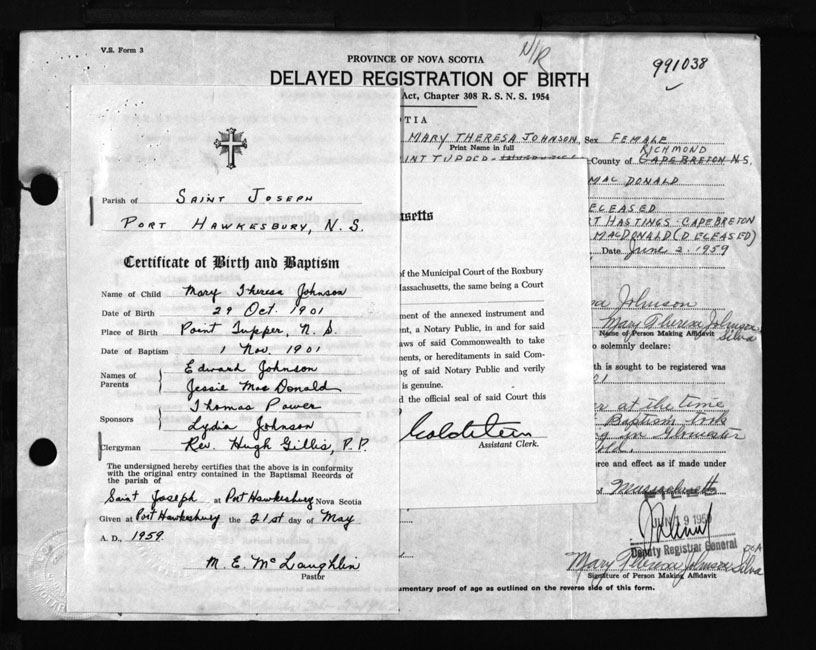 V.S. Form 3
N/R
991038
PROVINCE OF NOVA SCOTIA
DELAYED REGISTRATION OF BIRTH
Act, Chapter 308 R. S. N. S. 1954
OTIA
MARY THERESA JOHNSON, Sex FEMALE
Print Name in full
RICHMOND
INT TUPPER County of CAPE BRETON N.S.
MAC DONALD
ECEASED
T HASTINGS - CAPE BRETON
MACDONALD (DECEASED)
Date June 2. 1959
Parish of SAINT JOSEPH
PORT HAWKESBURY, N. S.
Certificate of Birth and Baptism
Name of Child Mary Theresa Johnson
Date of Birth 29 Oct. 1901
Place of Birth Point Tupper, N. S.
Date of Baptism 1 Nov. 1901
Names of Parents
Edward Johnson
Jessie MacDonald
Sponsors
Thomas Power
Lydia Johnson
Clergyman Rev. Hugh Gillis, P. P.
The undersigned hereby certifies that the above is in conformity
with the original entry contained in the Baptismal Records of
the parish of
Saint Joseph at Port Hawkesbury Nova Scotia
Given at Port Hawkesbury the 21st day of May
A. D., 1959.
M. E. McLaughlin
Pastor
usetts
of the Municipal Court of the Roxbury
Massachusetts, the same being a Court
ment of the annexed instrument and
ent, a Notary Public, in and for said
aws of said Commonwealth to take
ments, or hereditaments in said Com-
ng of said Notary Public and verify
is genuine.
d the official seal of said Court this
Goldstein
Assistant Clerk.
sa Johnson
Mary Theresa Johnson
Silva
Name of Person Making Affidavit
o solemnly declare:
th is sought to be registered was
er at the time
Baptism took
orce and effect as if made under
of Massachusetts
JUN 19 195
Deputy Registrar General
Mary Theresa Johnson Silva
Signature of Person Making Affidavit
umentary proof of age as outlined on the reverse side of this form.